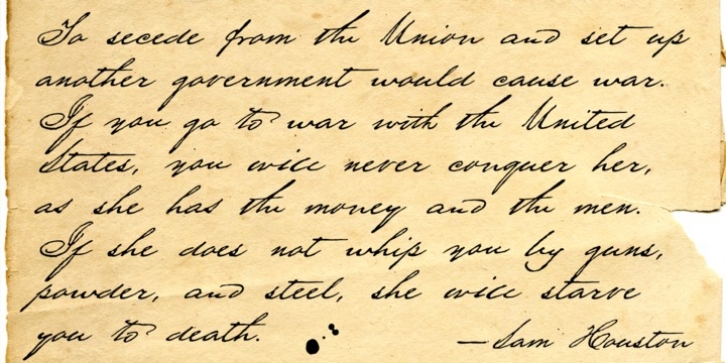 To secede from the Union and set up
another government would cause war.
If you go to war with the United
States, you will never conquer her,
as she has the money and the men.
If she does not whip you by guns,
powder, and steel, she will starve
you to death.
—Sam Houston